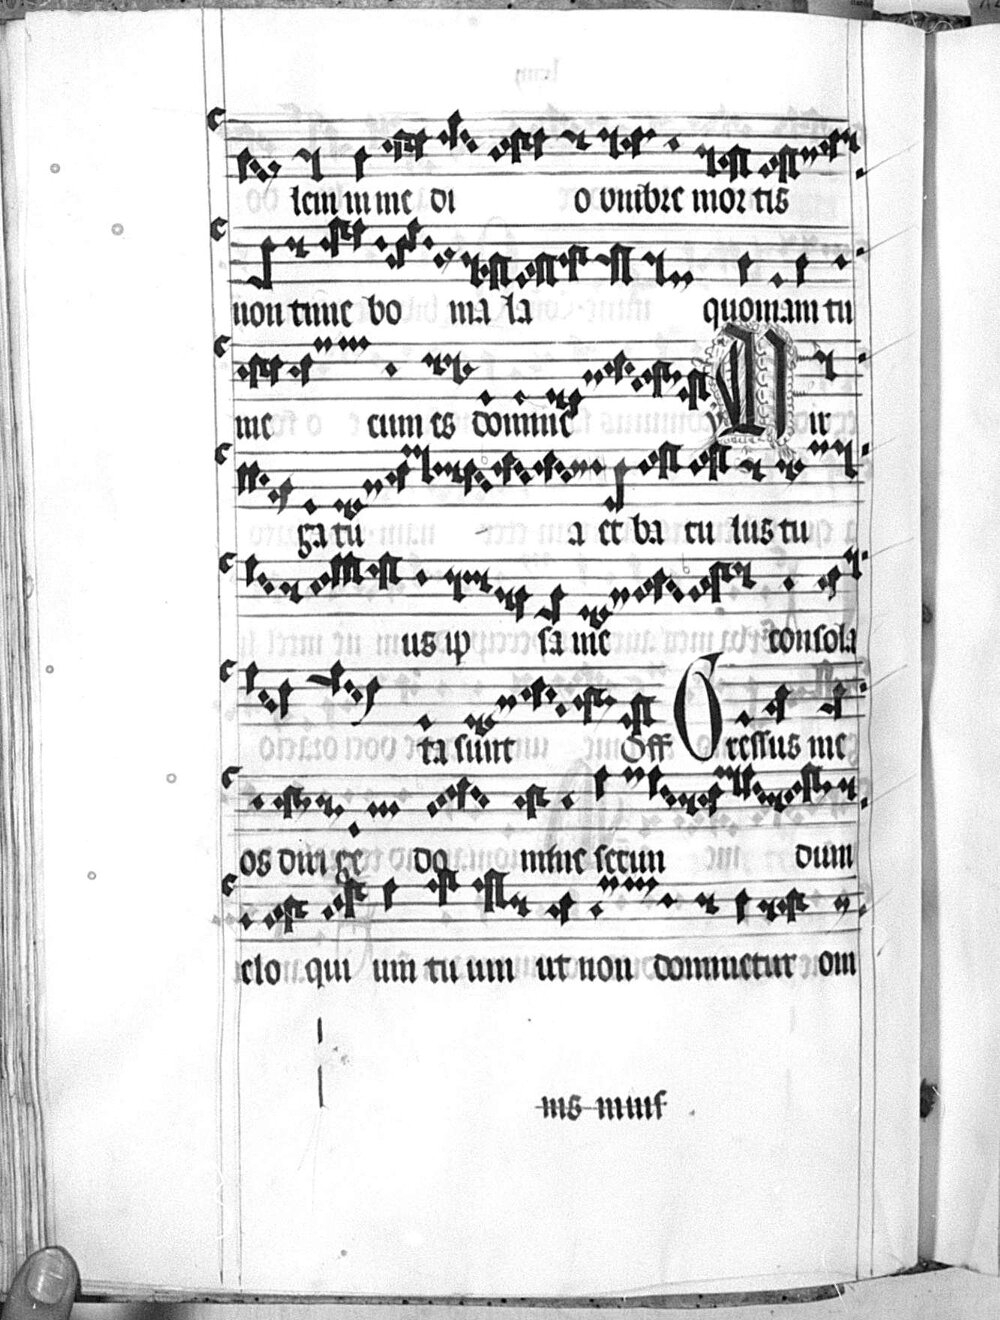 lem in me di o vmbre mortis
non time bo ma la quoniam tu
me cum es domine Vir
ga tu a et ba cu lus tu
us ip sa me consola
ta sunt Off Gressus me
os dirige do mine secun dum
elo qui um tu um ut non dominetur om
nis